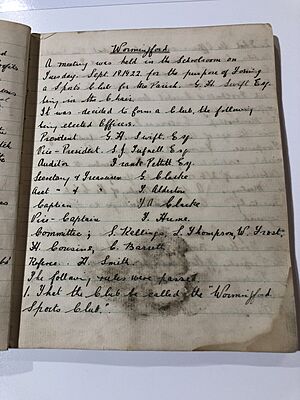 Wormingford
A meeting was held in the Schoolroom on
Tuesday. Sept. 19.1922. for the purpose of forming
a Sports Club for the Parish. G. H. Swift Esq.
being in the Chair.
It was decided to form a Club, the following
being elected Officers.
President G. H. Swift. Esq
Vice-President. S. J. Tufnell. Esq.
Auditor Frank Pettitt Esq.
Secretary & Treasurer G. Clarke
Asst " & " F. Alderton
Captain A. Clarke
Vice-Captain F. Hume.
Committee; S. Kellings, S. Thompson, W. Frost,
H. Cousins, C. Barrett.
Referee. H. Smith.
The following rules were passed.
1. That the Club be called the "Wormingford
Sports Club."